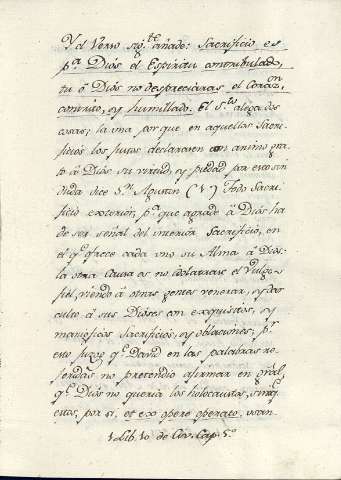 Y el Verso sig.te añade: Sacrificio es
p.a Dios el Espiritu contribulado,
tu ô Dios no despreciaras el Corazon
contrito, y humillado. El S.to alega dos
cosas; la una porque en aquellos Sacri-
ficios los justos declarasen con animo gra-
to â Dios su virtud, y piedad por eso sin
duda dice S.n Agustin (1) Todo Sacri-
ficio exoterior, p.a que agrade â Dios ha
de ser señal del interior Sacrificio, en
el q.e ofrece cada uno su Alma â Dios:
la otra causa es no idolatrase el Vulgo
fiel, viendo â otras gentes venerar, y dar
culto â sus Dioses con exquisitos, y
magnificos Sacrificios, y oblaciones: p.r
esto juzgo q.e David en las palabras re-
feridas no pretendio afirmar en gral.
q.e Dios no queria los holocaustos, sino q.e
estos, por si, et exo opere operato, usan-
1 Lib. 10 de Civ. Cap. 5.o